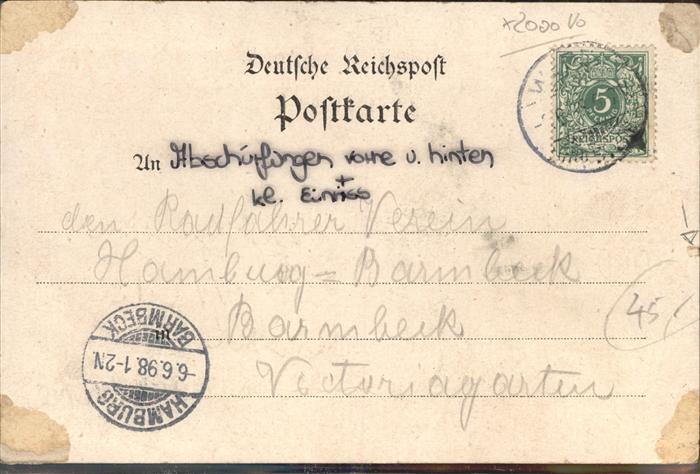 ×2000 Vo
Deutsche Reichspost
Postkarte
5
REICHSPOST
An Abschürfungen vorne u. hinten
+
kl. Einriss
den Radfahrer Verein
Hamburg=Barmbeck
45
in Barmbeck
Victoriagarten
HAMBURG
6.6.98.1-2N.
BARMBECK